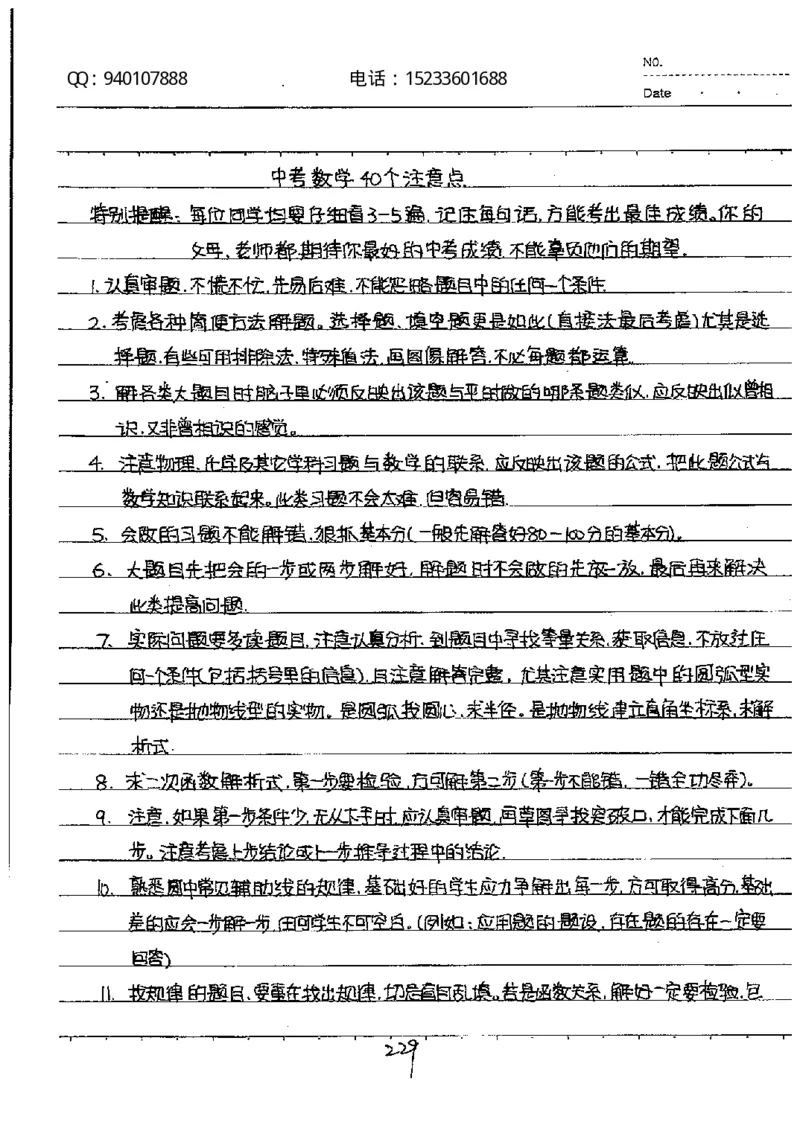 QQ：940107888
电话：15233601688
NO.
Date
中考数学40个注意点
特别提醒：每位同学均要仔细看3-5遍，记住每句话，方能考出最佳成绩。你的
父母，老师都期待你最好的中考成绩，不能辜负他们的期望。
1. 认真审题，不慌不忙，先易后难，不能忽略题目中的任何一个条件
2. 考虑各种简便方法解题。选择题、填空题更是如此(直接法最后考虑)尤其是选
择题，有些可用排除法，特殊值法，画图像解答，不必每题都运算
3. 解各类大题目时脑子里必须反映出该题与平时做的哪条题类似，应反映出似曾相
识，又非曾相识的感觉。
4. 注意物理、化学及其它学科习题与数学的联系，应反映出该题的公式，把此题公式与
数学知识联系起来。此类习题不会太难，但容易错
5、会做的习题不能解错，狠抓基本分(一般先解答好80-100分的基本分)。
6、大题目先把会的一步或两步解好，解题时不会做的先放一放，最后再来解决
此类提高问题.
7、实际问题要多读题目，注意认真分析，到题目中寻找等量关系，获取信息，不放过任
何一个条件(包括括号里的信息)，且注意解答完整，尤其注意实用题中的圆弧型实
物还是抛物线型的实物。是圆弧找圆心，求半径。是抛物线建立直角坐标系，求解
析式.
8、求二次函数解析式，第一步要检验，方可解第二步(第一步不能错，一错全功尽弃)。
9、注意，如果第一步条件少，无从下手时，应认真审题，画草图寻找突破口，才能完成下面几
步。注意考虑上步结论或上一步推导过程中的结论.
10、熟悉圆中常见辅助线的规律，基础好的学生应力争解出每一步，方可取得高分，基础
差的应会一步解一步，任何学生不可空白。(例如：应用题的题设，存在题的存在一定要
回答)
11、找规律的题目，要重在找出规律，切忌盲目乱填。若是函数关系，解好一定要检验，包
229